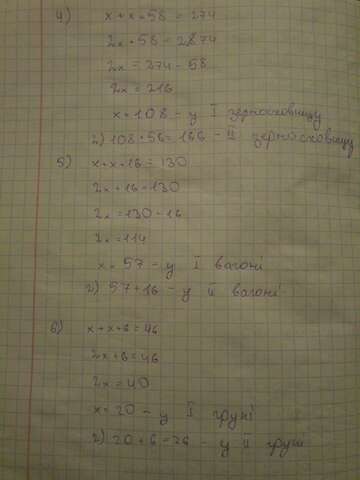 4) x + x + 58 = 274
2x + 58 = 2874
2x = 274 - 58
2x = 216
x = 108 - у I зерносховищу
2) 108 + 56 = 166 - II зерносховищу
5) x + x + 16 = 130
2x + 16 = 130
2x = 130 - 16
2x = 114
x = 57 - у I вагоні
2) 57 + 16 - у II вагоні
6) x + x + 6 = 46
2x + 6 = 46
2x = 40
x = 20 - у I групі
2) 20 + 6 = 26 - у II групі